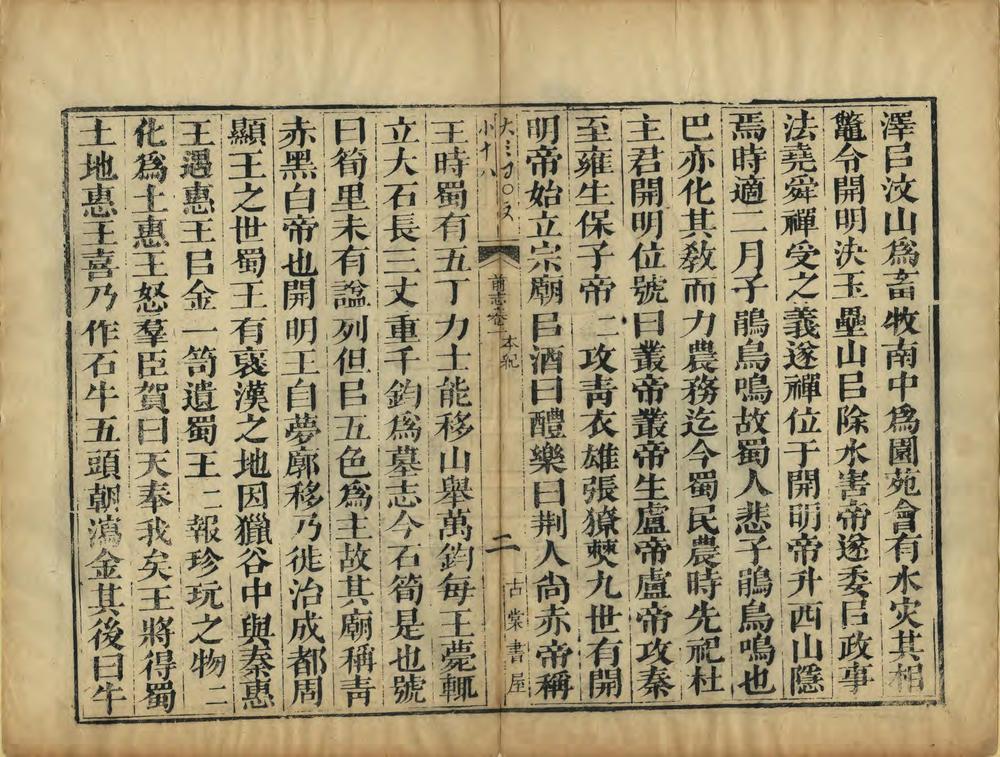 澤㠯汶山爲畜牧南中爲園苑會有水灾其相
鼈令開明決玉壘山㠯除水害帝遂委㠯政事
法堯舜禪受之義遂禪位于開明帝升西山隱
焉時適二月子鵑鳥鳴故蜀人悲子鵑鳥鳴也
巴亦化其敎而力農務迄今蜀民農時先祀杜
主君開明位號曰叢帝叢帝生盧帝盧帝攻秦
至雍生保子帝二攻青衣雄張獠僰九世有開
明帝始立宗廟㠯酒曰醴樂曰荆人尚赤帝稱
小十八
前志卷二 本紀
二
古棠書屋
王時蜀有五丁力士能移山舉萬鈞每王薨輒
立大石長三丈重千鈞爲墓志今石筍是也號
曰筍里未有諡列但㠯五色爲主故其廟稱青
赤黑白帝也開明王自夢廓移乃徙治成都周
顯王之世蜀王有襃漢之地因獵谷中與秦惠
王遇惠王㠯金一笥遺蜀王二報珍玩之物二
化爲土惠王怒羣臣賀曰天奉我矣王將得蜀
土地惠王喜乃作石牛五頭朝瀉金其後曰牛